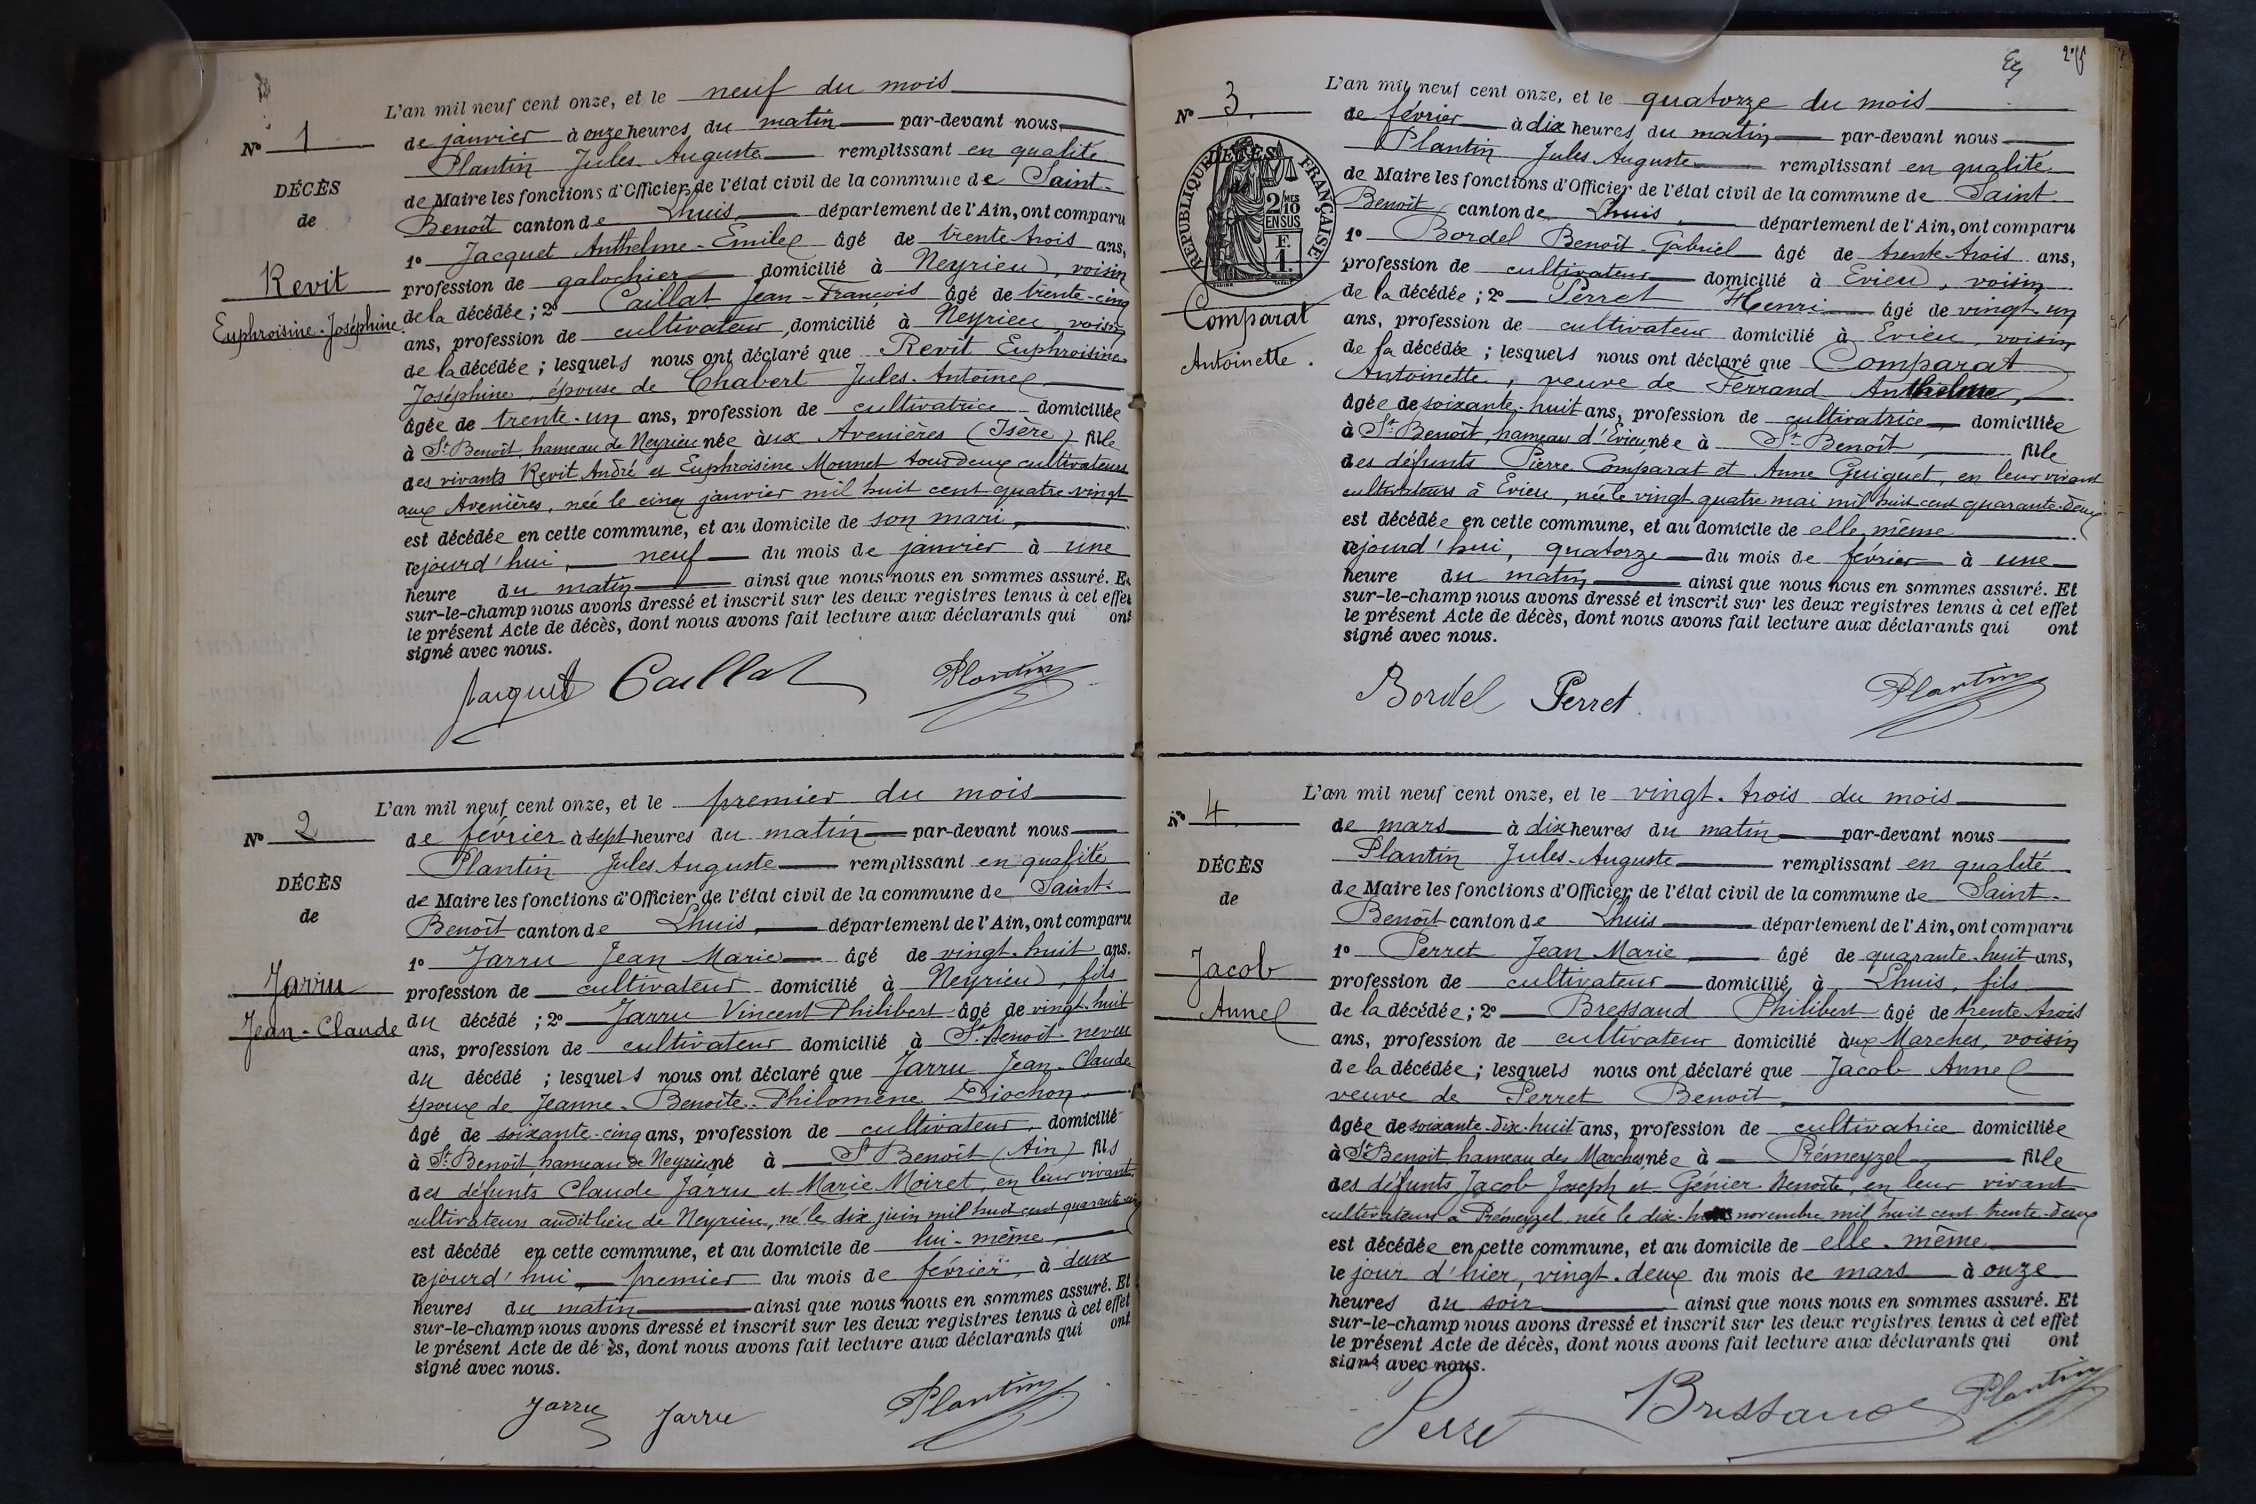 L'an mil neuf cent onze, et le neuf du mois
N° 1
de janvier à onze heures du matin par-devant nous
Plantin Jules Auguste remplissant en qualité
DÉCÈS
de Maire les fonctions d'Officier de l'état civil de la commune de Saint-
de
Benoît canton de Lhuis département de l'Ain, ont comparu
1° Jacquet Anthelme-Emile âgé de trente trois ans,
Revit
profession de galochier domicilié à Neyrieu, voisin
Euphroisine-Joséphine
de la décédée ; 2° Caillat Jean-François âgé de trente-cinq
ans, profession de cultivateur domicilié à Neyrieu, voisin
de la décédée ; lesquels nous ont déclaré que Revit Euphroisine
Joséphine, épouse de Chabert Jules-Antoine
âgée de trente-un ans, profession de cultivatrice domiciliée
à St Benoît, hameau de Neyrieu née aux Avenières (Isère) fille
des vivants Revit André et Euphroisine Monnet tous deux cultivateurs
aux Avenières, née le cinq janvier mil huit cent quatre vingt
est décédée en cette commune, et au domicile de son mari,
cejourd'hui, neuf du mois de janvier à une
heure du matin ainsi que nous nous en sommes assuré. Et
sur-le-champ nous avons dressé et inscrit sur les deux registres tenus à cet effet
le présent Acte de décès, dont nous avons fait lecture aux déclarants qui ont
signé avec nous.
Jacquet Caillat Plantin
L'an mil neuf cent onze, et le premier du mois
N° 2
de février à sept heures du matin par-devant nous
Plantin Jules Auguste remplissant en qualité
DÉCÈS
de Maire les fonctions d'Officier de l'état civil de la commune de Saint-
de
Benoît canton de Lhuis, département de l'Ain, ont comparu
1° Jarru Jean Marie âgé de vingt-huit ans.
Jarru
profession de cultivateur domicilié à Neyrieu, fils
Jean-Claude
du décédé ; 2° Jarru Vincent Philibert âgé de vingt-huit
ans, profession de cultivateur domicilié à St Benoît neveu
du décédé ; lesquels nous ont déclaré que Jarru Jean-Claude
époux de Jeanne-Benoîte-Philomène Diochon
âgé de soixante-cinq ans, profession de cultivateur, domicilié
à St Benoît hameau de Neyrieu né à St Benoît (Ain) fils
des défunts Claude Jarru et Marie Moiret, en leur vivant
cultivateurs audit lieu de Neyrieu, né le dix juin mil huit cent quarante-cinq
est décédé en cette commune, et au domicile de lui-même,
cejourd'hui premier du mois de février, à deux
heures du matin ainsi que nous nous en sommes assuré. Et
sur-le-champ nous avons dressé et inscrit sur les deux registres tenus à cet effet
le présent Acte de dé ès, dont nous avons fait lecture aux déclarants qui ont
signé avec nous.
Jarru Jarru Plantin
L'an mil neuf cent onze, et le quatorze du mois
N° 3.
de février à dix heures du matin par-devant nous
Plantin Jules Auguste remplissant en qualité
DÉCÈS
RÉPUBLIQUE FRANÇAISE
2 MES
10
EN SUS
F.
1.
de Maire les fonctions d'Officier de l'état civil de la commune de Saint
Benoît canton de Lhuis, département de l'Ain, ont comparu
1° Bordel Benoît-Gabriel âgé de trente-trois ans,
profession de cultivateur domicilié à Evieu, voisin
Comparat
de la décédée ; 2° Perret Henri âgé de vingt-un
Antoinette.
ans, profession de cultivateur domicilié à Evieu, voisin
de la décédée ; lesquels nous ont déclaré que Comparat
Antoinette, veuve de Ferrand Anthelme,
âgée de soixante-huit ans, profession de cultivatrice domiciliée
à St Benoît, hameau d'Evieu née à St Benoît, fille
des défunts Pierre Comparat et Anne Guiguet, en leur vivant
cultivateurs à Evieu, née le vingt-quatre mai mil huit cent quarante-deux
est décédée en cette commune, et au domicile de elle même
cejourd'hui, quatorze du mois de février à une
heure du matin ainsi que nous nous en sommes assuré. Et
sur-le-champ nous avons dressé et inscrit sur les deux registres tenus à cet effet
le présent Acte de décès, dont nous avons fait lecture aux déclarants qui ont
signé avec nous.
Bordel Perret Plantin
L'an mil neuf cent onze, et le vingt-trois du mois
N° 4.
de mars à dix heures du matin par-devant nous
Plantin Jules-Auguste remplissant en qualité
DÉCÈS
de Maire les fonctions d'Officier de l'état civil de la commune de Saint-
de
Benoît canton de Lhuis département de l'Ain, ont comparu
1° Perret Jean Marie, âgé de quarante-huit ans,
Jacob
profession de cultivateur domicilié à Lhuis, fils
Anne
de la décédée ; 2° Bressaud Philibert âgé de trente-trois
ans, profession de cultivateur domicilié aux Marches, voisin
de la décédée ; lesquels nous ont déclaré que Jacob Anne
veuve de Perret Benoît
âgée de soixante-dix-huit ans, profession de cultivatrice domiciliée
à St Benoît hameau des Marches née à Prémeyzel, fille
des défunts Jacob Joseph et Génier Benoîte, en leur vivant
cultivateurs à Prémeyzel, née le dix- novembre mil huit cent trente-deux
est décédée en cette commune, et au domicile de elle-même
le jour d'hier, vingt-deux du mois de mars à onze
heures du soir ainsi que nous nous en sommes assuré. Et
sur-le-champ nous avons dressé et inscrit sur les deux registres tenus à cet effet
le présent Acte de décès, dont nous avons fait lecture aux déclarants qui ont
signé avec nous.
Perret Bressaud Plantin